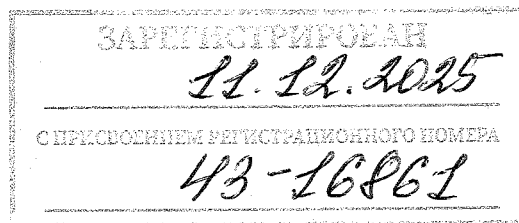 ЗАРЕГИСТРИРОВАН
11.12.2025
С ПРИСВОЕНИЕМ РЕГИСТРАЦИОННОГО НОМЕРА
43-16861